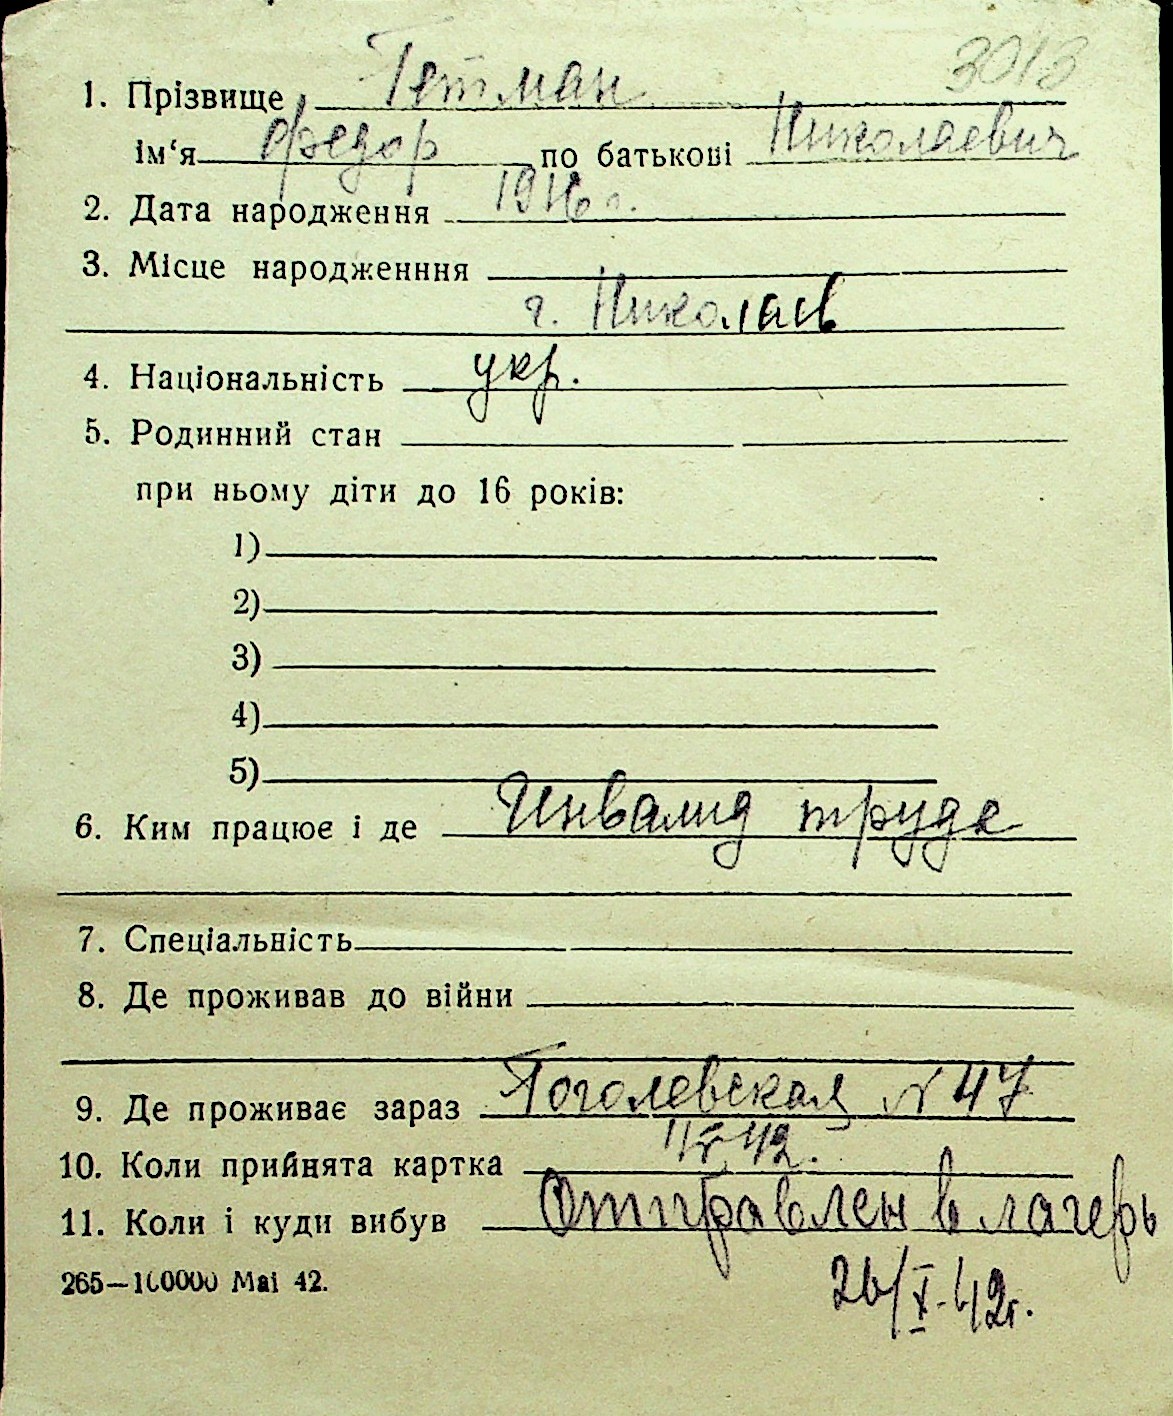 3013
1. Прізвище Гетман
ім‘я Федор по батькові Николаевич
2. Дата народження 1916 г.
3. Місце народженння
г. Николаев
4. Національність укр.
5. Родинний стан
при ньому діти до 16 років:
1)
2)
3)
4)
5)
6. Ким працює і де Инвалид труда
7. Спеціальність
8. Де проживав до війни
9. Де проживає зараз Гоголевская № 47
10. Коли прийнята картка
11. Коли і куди вибув Отправлен в лагерь
265—100000 Mai 42.
26/X-42г.